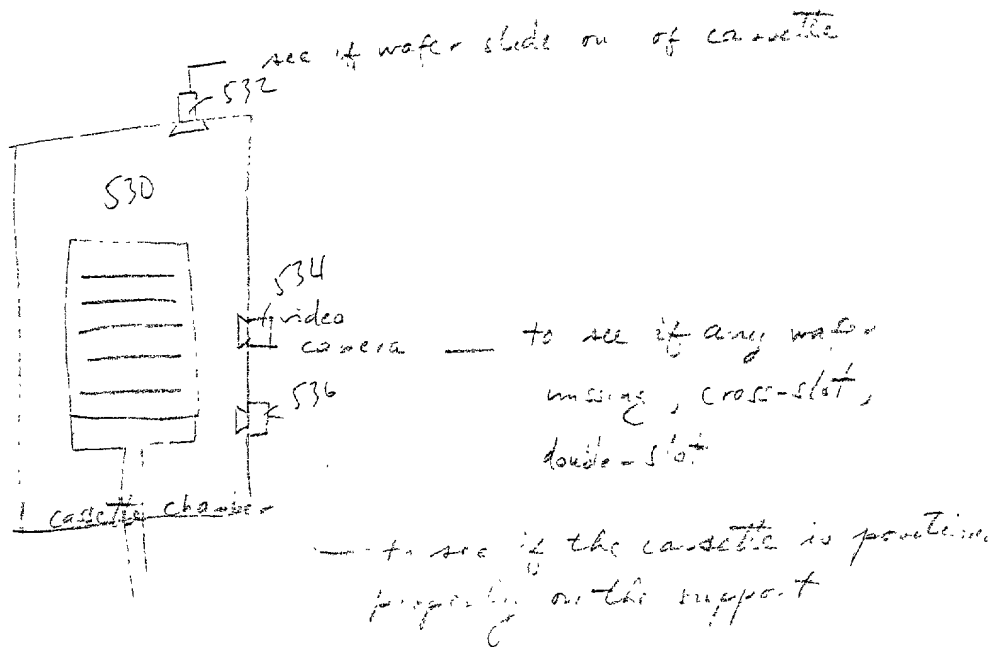 see if wafer slide on of cassette
532
530
534
video
camera — to see if any wafer
missing, cross-slot,
double-slot
536
cassette chamber
— to see if the cassette is
properly on the support